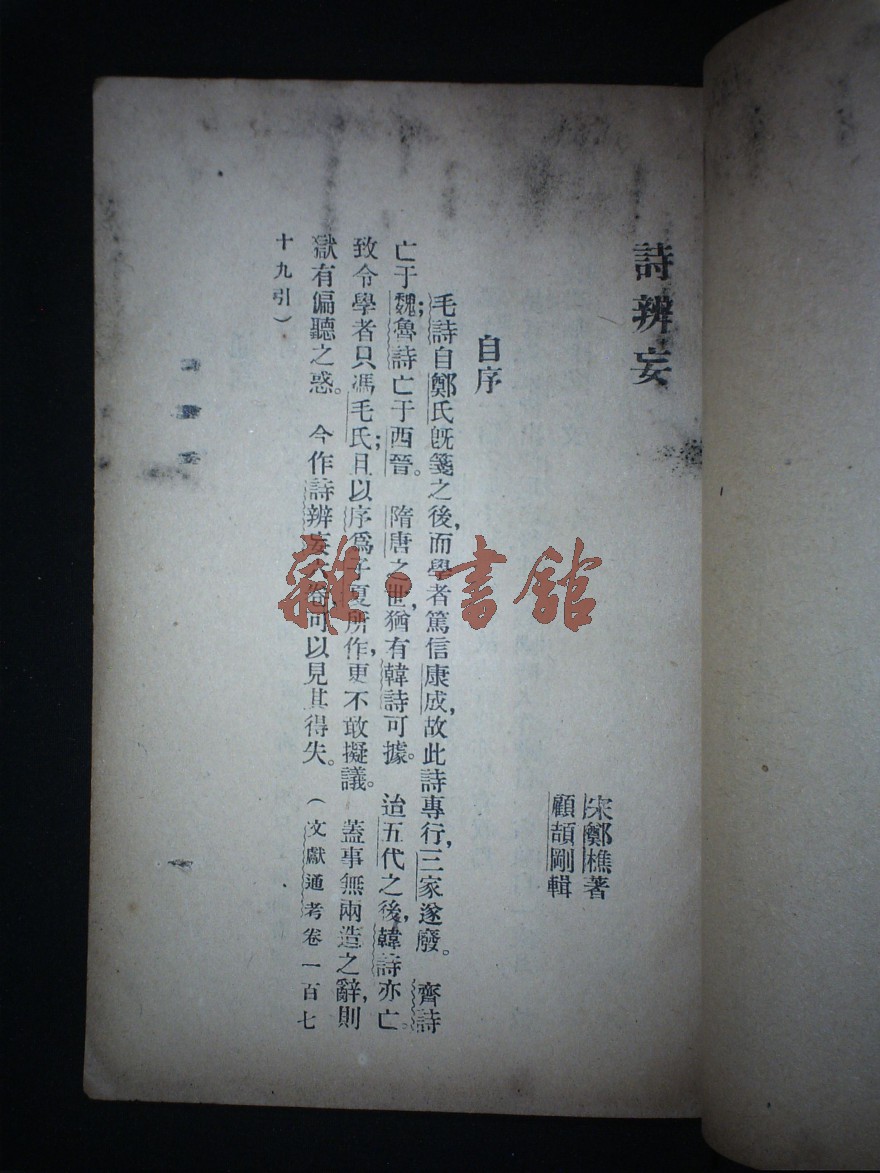 詩辨妄
宋鄭樵著
顧頡剛輯
自序
毛詩自鄭氏旣箋之後，而學者篤信康成，故此詩專行，三家遂廢。齊詩
亡于魏；魯詩亡于西晉。隋唐之世，猶有韓詩可據。迨五代之後，韓詩亦亡。
致令學者只馮毛氏；且以序爲子夏所作，更不敢擬議。蓋事無兩造之辭，則
獄有偏聽之惑。今作詩辨妄六卷，可以見其得失。（文獻通考卷一百七
十九引）
雜·書館